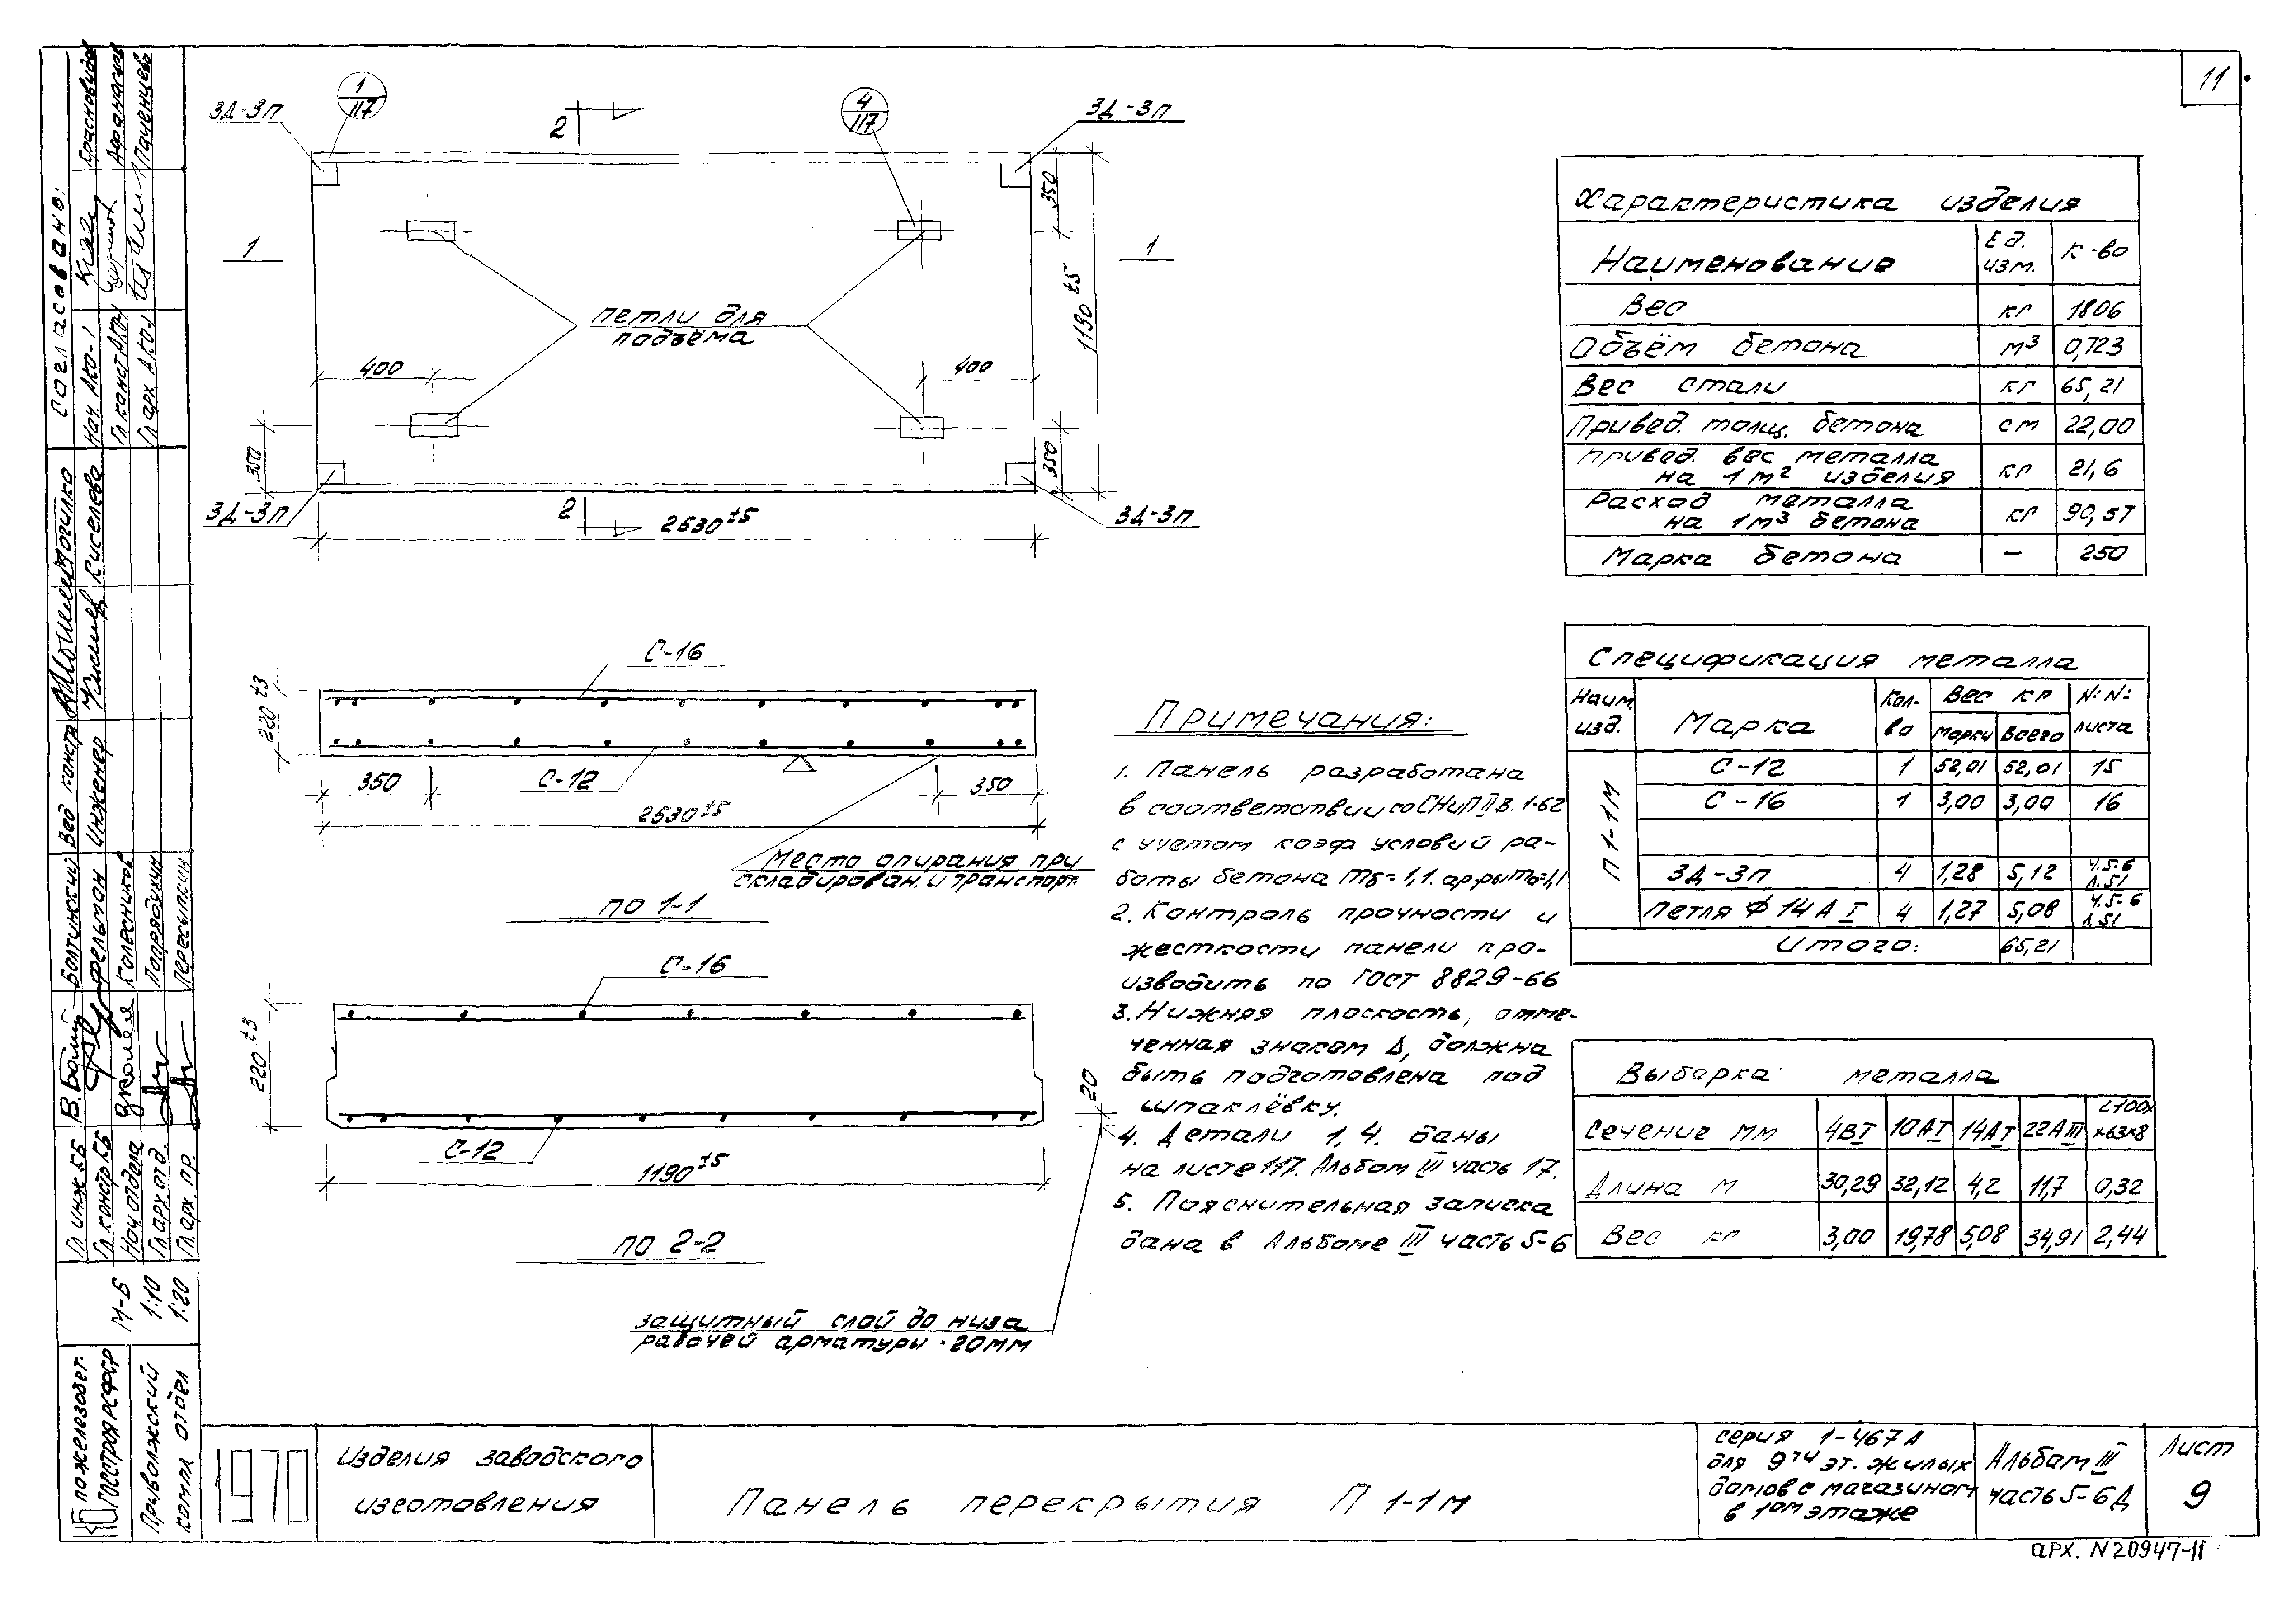 11
3Д-3П
1
117
2
4
117
3Д-3П
350
1
1
1190±5
петли для
подъёма
400
400
350
350
3Д-3П
2
2630±5
3Д-3П
С-16
220±3
С-12
350
350
2630±5
Место опирания при
складирован. и транспорт.
по 1-1
С-16
220±3
20
С-12
1190±5
по 2-2
защитный слой до низа
рабочей арматуры - 20мм
Примечания:
1. Панель разработана
в соответствии со СНиП II В. 1-62
с учетом коэф условий ра-
боты бетона mб=1,1. ар-ры mа=1,1
2. Контроль прочности и
жесткости панели про-
изводить по ГОСТ 8829-66
3. Нижняя плоскость, отме-
ченная знаком Δ, должна
быть подготовлена под
шпаклёвку.
4. Детали 1, 4. даны
на листе 117. Альбом III часть 17.
5. Пояснительная записка
дана в Альбоме III часть 5-6
Характеристика изделия
Наименование Ед. изм. К-во
Вес кг 1806
Объём бетона м³ 0,723
Вес стали кг 65,21
Привед. толщ. бетона см 22,00
Привед. вес металла
на 1м² изделия кг 21,6
Расход металла
на 1м³ бетона кг 90,57
Марка бетона — 250
Спецификация металла
Наим. изд. Марка Кол-во Вес кг N:N: листа
Марки Всего
П 1-1М
С-12 1 52,01 52,01 15
С-16 1 3,00 3,00 16
3Д-3П 4 1,28 5,12 ч.5-6 л.51
Петля Ф 14 А I 4 1,27 5,08 ч.5-6 л.51
Итого: 65,21
Выборка металла
Сечение мм 4ВI 10АI 14АI 22АIII L100х х63х8
Длина м 30,29 32,12 4,2 11,7 0,32
Вес кг 3,00 19,78 5,08 34,91 2,44
Согласовано:
Нач. АКО-1 Красновидов
Гл. конст АКО-1 Афанасьев
Гл. арх. АКО-1
Вед. констр.
Инженер Киселева
Гл. инж КБ Болтинский
Гл. констр КБ Фельман
Нач отдела Колесников
Гл. арх. отд.
Гл. арх. пр. Пересыпкин
М-Б
1:10
1:20
КБ по железобет.
Госстроя РСФСР
Приволжский
компл отдел
1970
Изделия заводского
изготовления
Панель перекрытия П 1-1м
серия 1-467А
для 9ти эт. жилых
домов с магазином
в 1ом этаже
Альбом III
часть 5-6Д
Лист
9
арх. N 20947-11